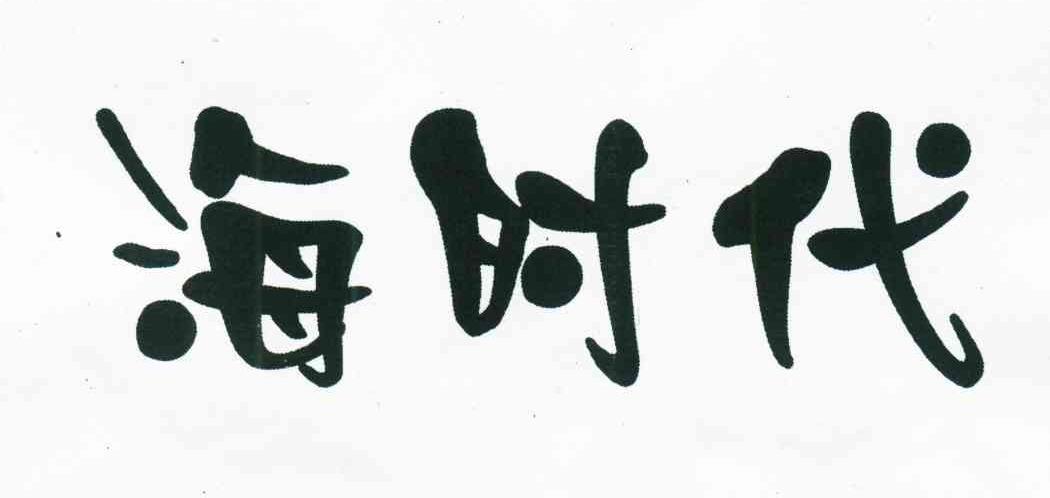 海时代